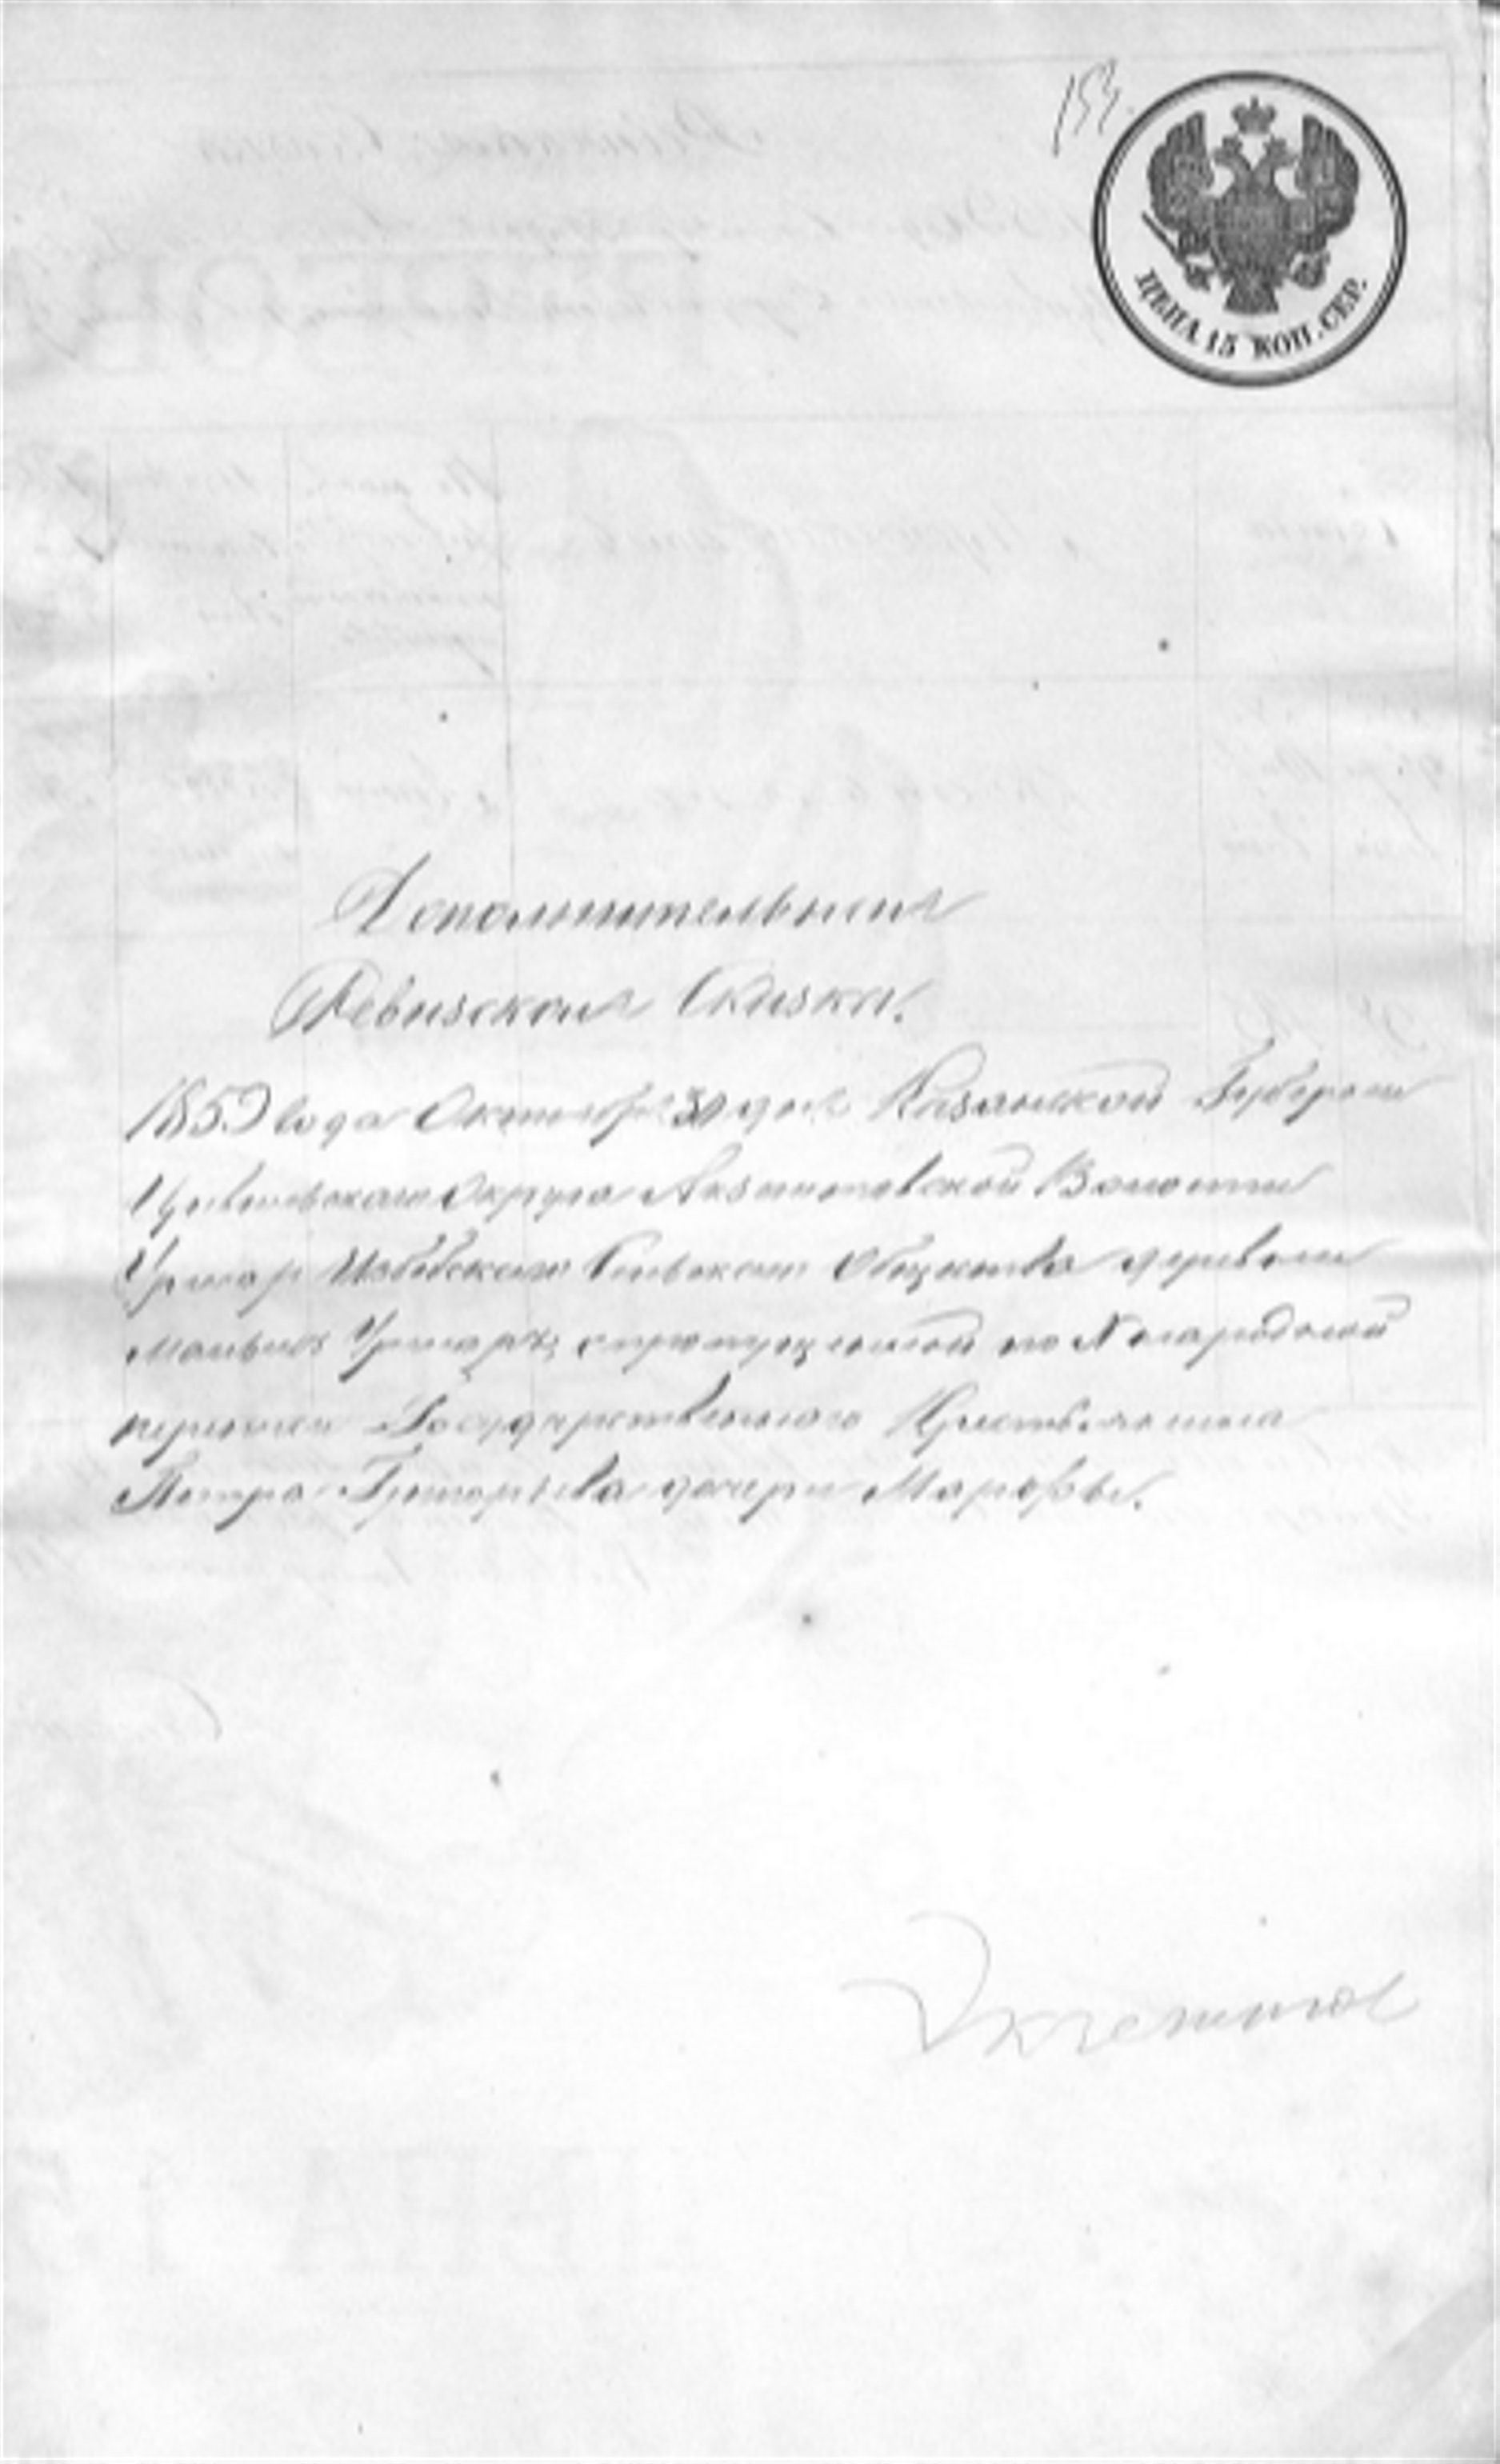 153.
ЦѢНА 15 КОП. СЕР.
Дополнительная
Ревизская Сказка.
1859 года Октября 30 дня Казанской Губернии
Цивильскаго Округа Акзегитовской Волости
Урмар Сельскаго Общества деревни
Малыхъ Урмаръ, о пропущенной по Х народной
переписи Государственнаго Крестьянина
Петра Григорьева дочери Марфы.